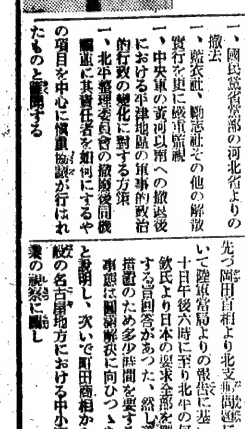 一、國民黨各黨部の河北省よりの
撤去
一、藍衣社、勵志社その他の解散
實行を更に嚴重監視
一、中央軍の黄河以南への撤退後
における平津地區の軍事的政治
的行政の變化に對する方策
一、北平整理委員會の撤廢後同機
關竝に其責任者を如何にするや
の項目を中心に愼重協議が行はれ
たものと
する
先づ岡田首相より北支
問題
いて陸軍當局よりの報告に基
十日午後六時に至り北平の
欽氏より日本の要求全部を
する旨回答があつた、然し
措置のため多少時間を要す
事態は圓滿解決に向ひつゝ
と說明し、次いで町田商相か
の名古屋地方における中小
業の視察に關し